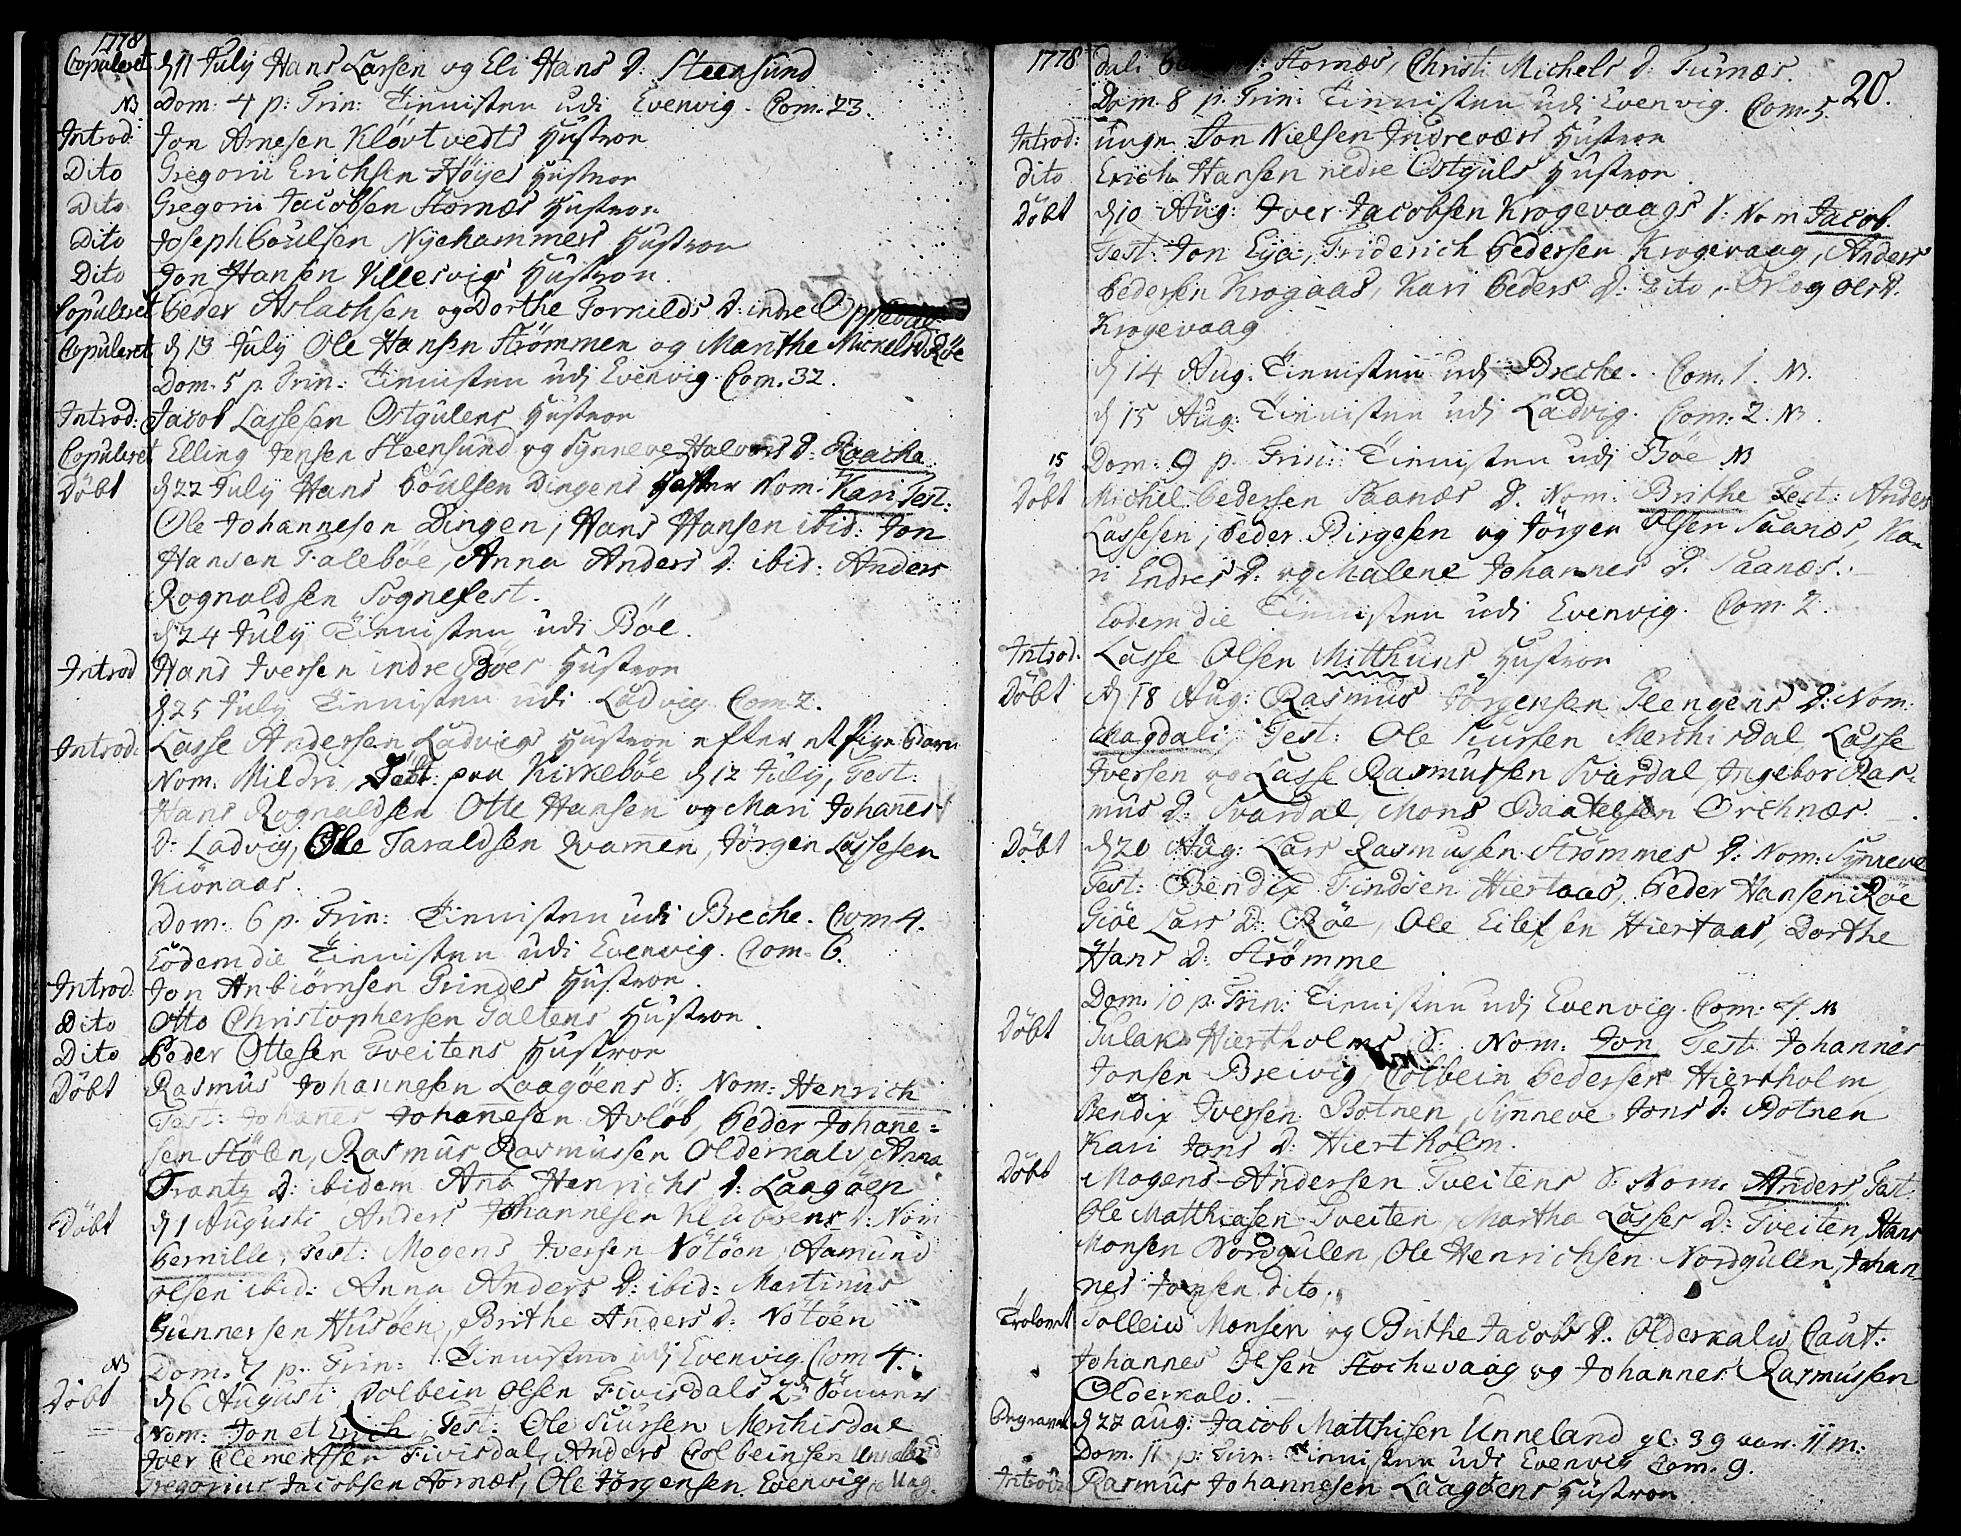 1778
Copuleret d 11 July Hans Larsen og Eli Hans D: Steensund
NB Dom: 4 p: Trin: Tienisten udi Evenvig. Com. 23.
Introd: Jon Arnesen Kløvtvedts Hustroe
Dito Gregorii Erichsen Höyes Hustroe
Dito Gregorii Jacobsen Stornæs Hustroe
Dito Joseph Poulsen Nyehammers Hustroe
Dito Jon Hansen Villesvigs Hustroe.
Copuleret Peder Aslachsen og Dorthe Tornilds D: indre
Copuleret d 13 July Ole Hansen Strömmen og Marithe Michels D Röe
Dom. 5 p. Trin: Tienisten udj Evenvig. Com. 32.
Introd: Jacob Lassesen Ostgulens Hustroe
Copuleret Elling Jensen Steensund og Synneve Halvors D. Kaache
Döbt d 22 July Hans Poulsen Dingens Nom. Kari Test:
Ole Johannesen Dingen, Hans Hansen ibid: Jon
Hansen Faleböe, Anna Anders D: ibid: Anders
Rognaldsen Sognefest.
d 24 July Tienisten udi Böe.
Introd Hans Iversen indre Böes Hustroe
d 25 July Tienisten udi Ladvig Com 2.
Introd: Lasse Andersen Ladvigs Hustroe efter et Pige Barn
Nom. Mildri, Döbt paa Kirkeböe d 12 July, Test:
Hans Rognaldsen Otte Hansen og Mari Johannes
D: Ladvig, Ole Taraldsen Qvamen, Jörgen Lassesen
Kiönaas.
Dom. 6 p. Trin: Tienisten udi Breche. Com 4.
Eodem die Tienisten udi Evenvig. Com. 6.
Introd: Jon Anbiörnsen Grindes Hustroe.
Dito Otto Christophersen Galtens Hustroe.
Dito Peder Ottesen Tveitens Hustroe
Döbt Rasmus Johannesen Laagöens S: Nom: Henrich
Test: Johanes Johanesen Avlöb, Peder Johane=
sen Stölen, Rasmus Rasmussen Olderkalv, Anna
Frantz D: ibidem Ana Henrichs D: Laagöen
Döbt d 1 Augusti Anders Johannesen Klubbens D: Nom
Pernille, Test: Mogens Iversen Nötöen, Aamund
Olsen ibid: Anna Anders D: ibid: Martinus
Gunnersen Husöen, Brithe Anders D: Nötöen
NB Dom. 7 p. Trin: Tienisten udj Evenvig Com 4.
Döbt d 6 Augusti: Colbein Olsen Fivisdals 2de Sönner
Nom: Jon et Erich Test: Ole Siursen Merchisdal
Iver Clemensen Fivisdal, Anders Colbeinsen
Gregorius Jacobsen Stornæs, Ole Jörgensen Evenvig, Mag
1778 dali D: Stornæs, Christi Michels D: Turnæs. 20.
Dom. 8 p. Trin: Tienisten udi Evenvig. Com. 5.
Introd: unge Jon Nielsen Indreværs Hustroe
dito Erich Hansen nedre Ostguls Hustroe
Döbt d 10 Aug: Iver Jacobsen Krogevaags S: Nom Jacob.
Test: Jon Eya, Friderich Pedersen Krogevaag, Anders
Pedersen Krogaas, Kari Peders D: dito,
Krogevaag
d 14 Aug. Tienisten udj Breche. Com. 1. NB.
d 15 Aug: Tienisten udj Ladvig. Com: 2. NB
15 Dom: 9 p. Trin: Tienisten udj Böe NB
Döbt Michel Pedersen Saanæs D. Nom: Brithe Test: Anders
Lassesen, Peder Birgesen og Jörgen Olsen Saanæs, Ka-
ri Endres D: og Malene Johannes D. Saanæs.
Eodem die Tienisten udi Evenvig. Com. 2.
Introd. Lasse Olsen Mitthuns Hustroe
Döbt d 18 Aug: Rasmus Jörgensen Glengens D: Nom.
Magdali, Test: Ole Siursen Merchisdal, Lasse
Iversen og Lasse Rasmussen Svardal, Ingebor Ras-
mus D. Svardal, Mons Baatelsen Orchnæs.
Döbt d 20 Aug: Lars Rasmussen Strömmes D: Nom: Synneve
Test: Bendix Findsen Hiertaas, Peder Hansen Röe
Giöe Lars D: Röe, Ole Eilefsen Hiertaas, Dorthe
Hans D: Strömme
Dom. 10 p. Trin: Tienisten udj Evenvig. Com: 4. NB
Döbt Gulak Hiertholms S: Nom. Jon Test: Johannes
Jonsen Breivig, Colbein Pedersen Hiertholm
Bendix Iversen Botnen, Synneve Jons D: Botnen
Kari Jons D: Hiertholm.
Döbt Mogens Andersen Tveitens S: Nom. Anders, Test:
Ole Matthiasen Tveiten, Martha Lasses D: Tveiten, Hans
Monsen Nordgulen, Ole Henrichsen Nordgulen, Johan-
nes Jonsen dito.
Trolovet Solleiv Monsen og Brithe Jacobs D. Olderkalv, Caut:
Johannes Olsen Stochevaag og Johannes Rasmussen
Olderkalv.
Begravet d 22 aug: Jacob Matthisen Unneland gl: 39 aar. 11 m:
Dom. 11 p. Trin: Tienisten udi Evenvig Com. 9.
Introd: Rasmus Johannesen Laagöens Hustroe